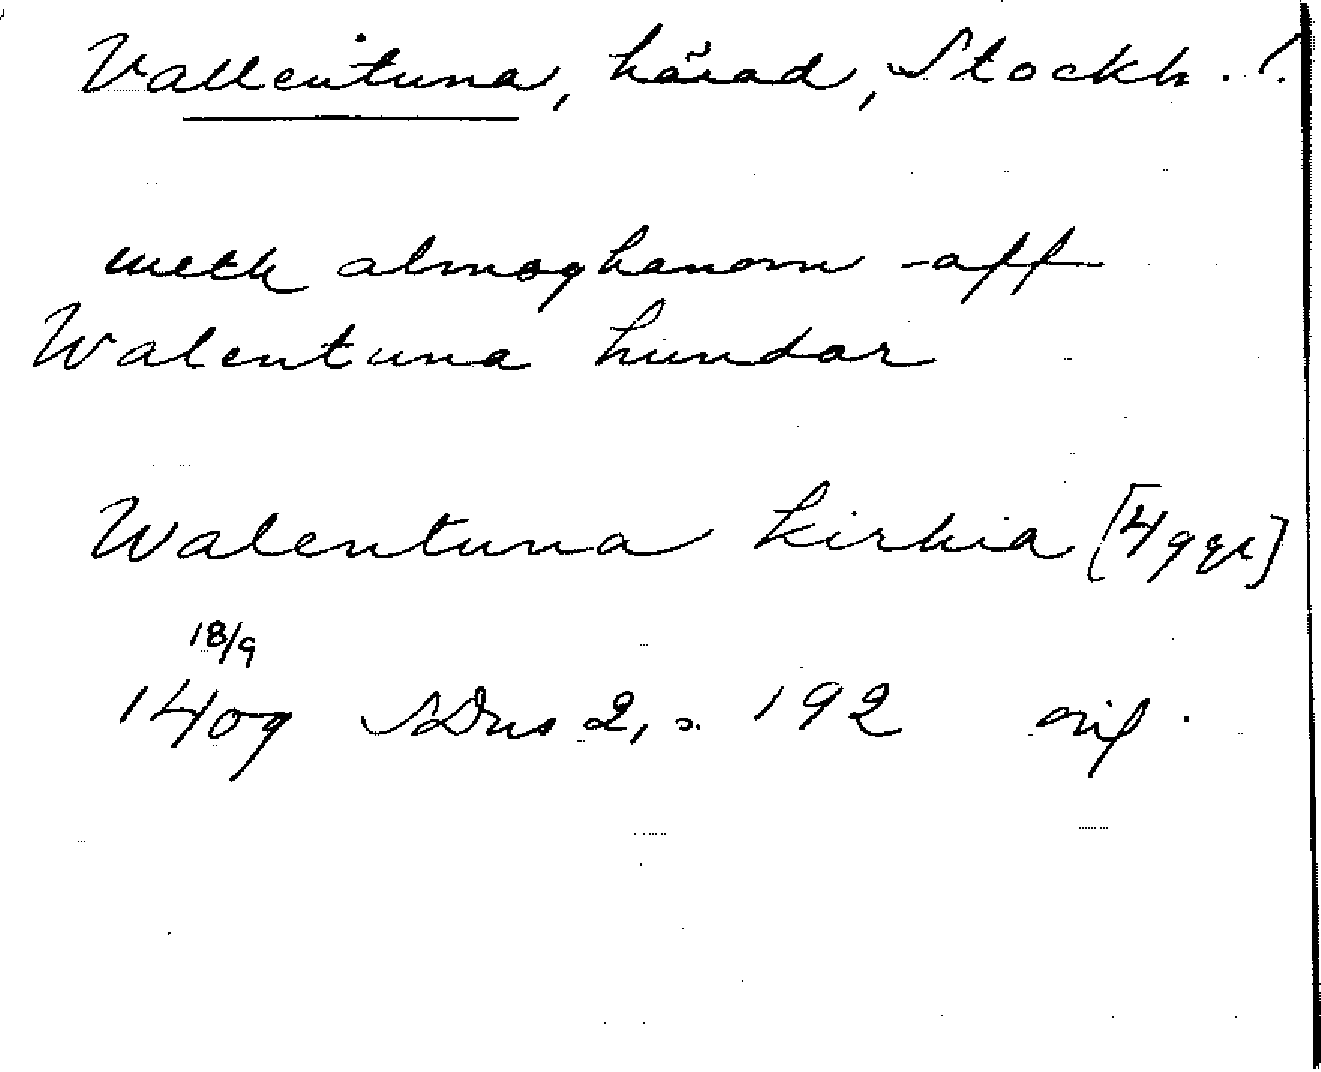 Vallentuna, härad, Stockh. l.
meth almoghanom aff
Walentuna hundar
Walentuna kirkia [4 ggr]
18/9
1409 SDns 2, s. 192 orig.